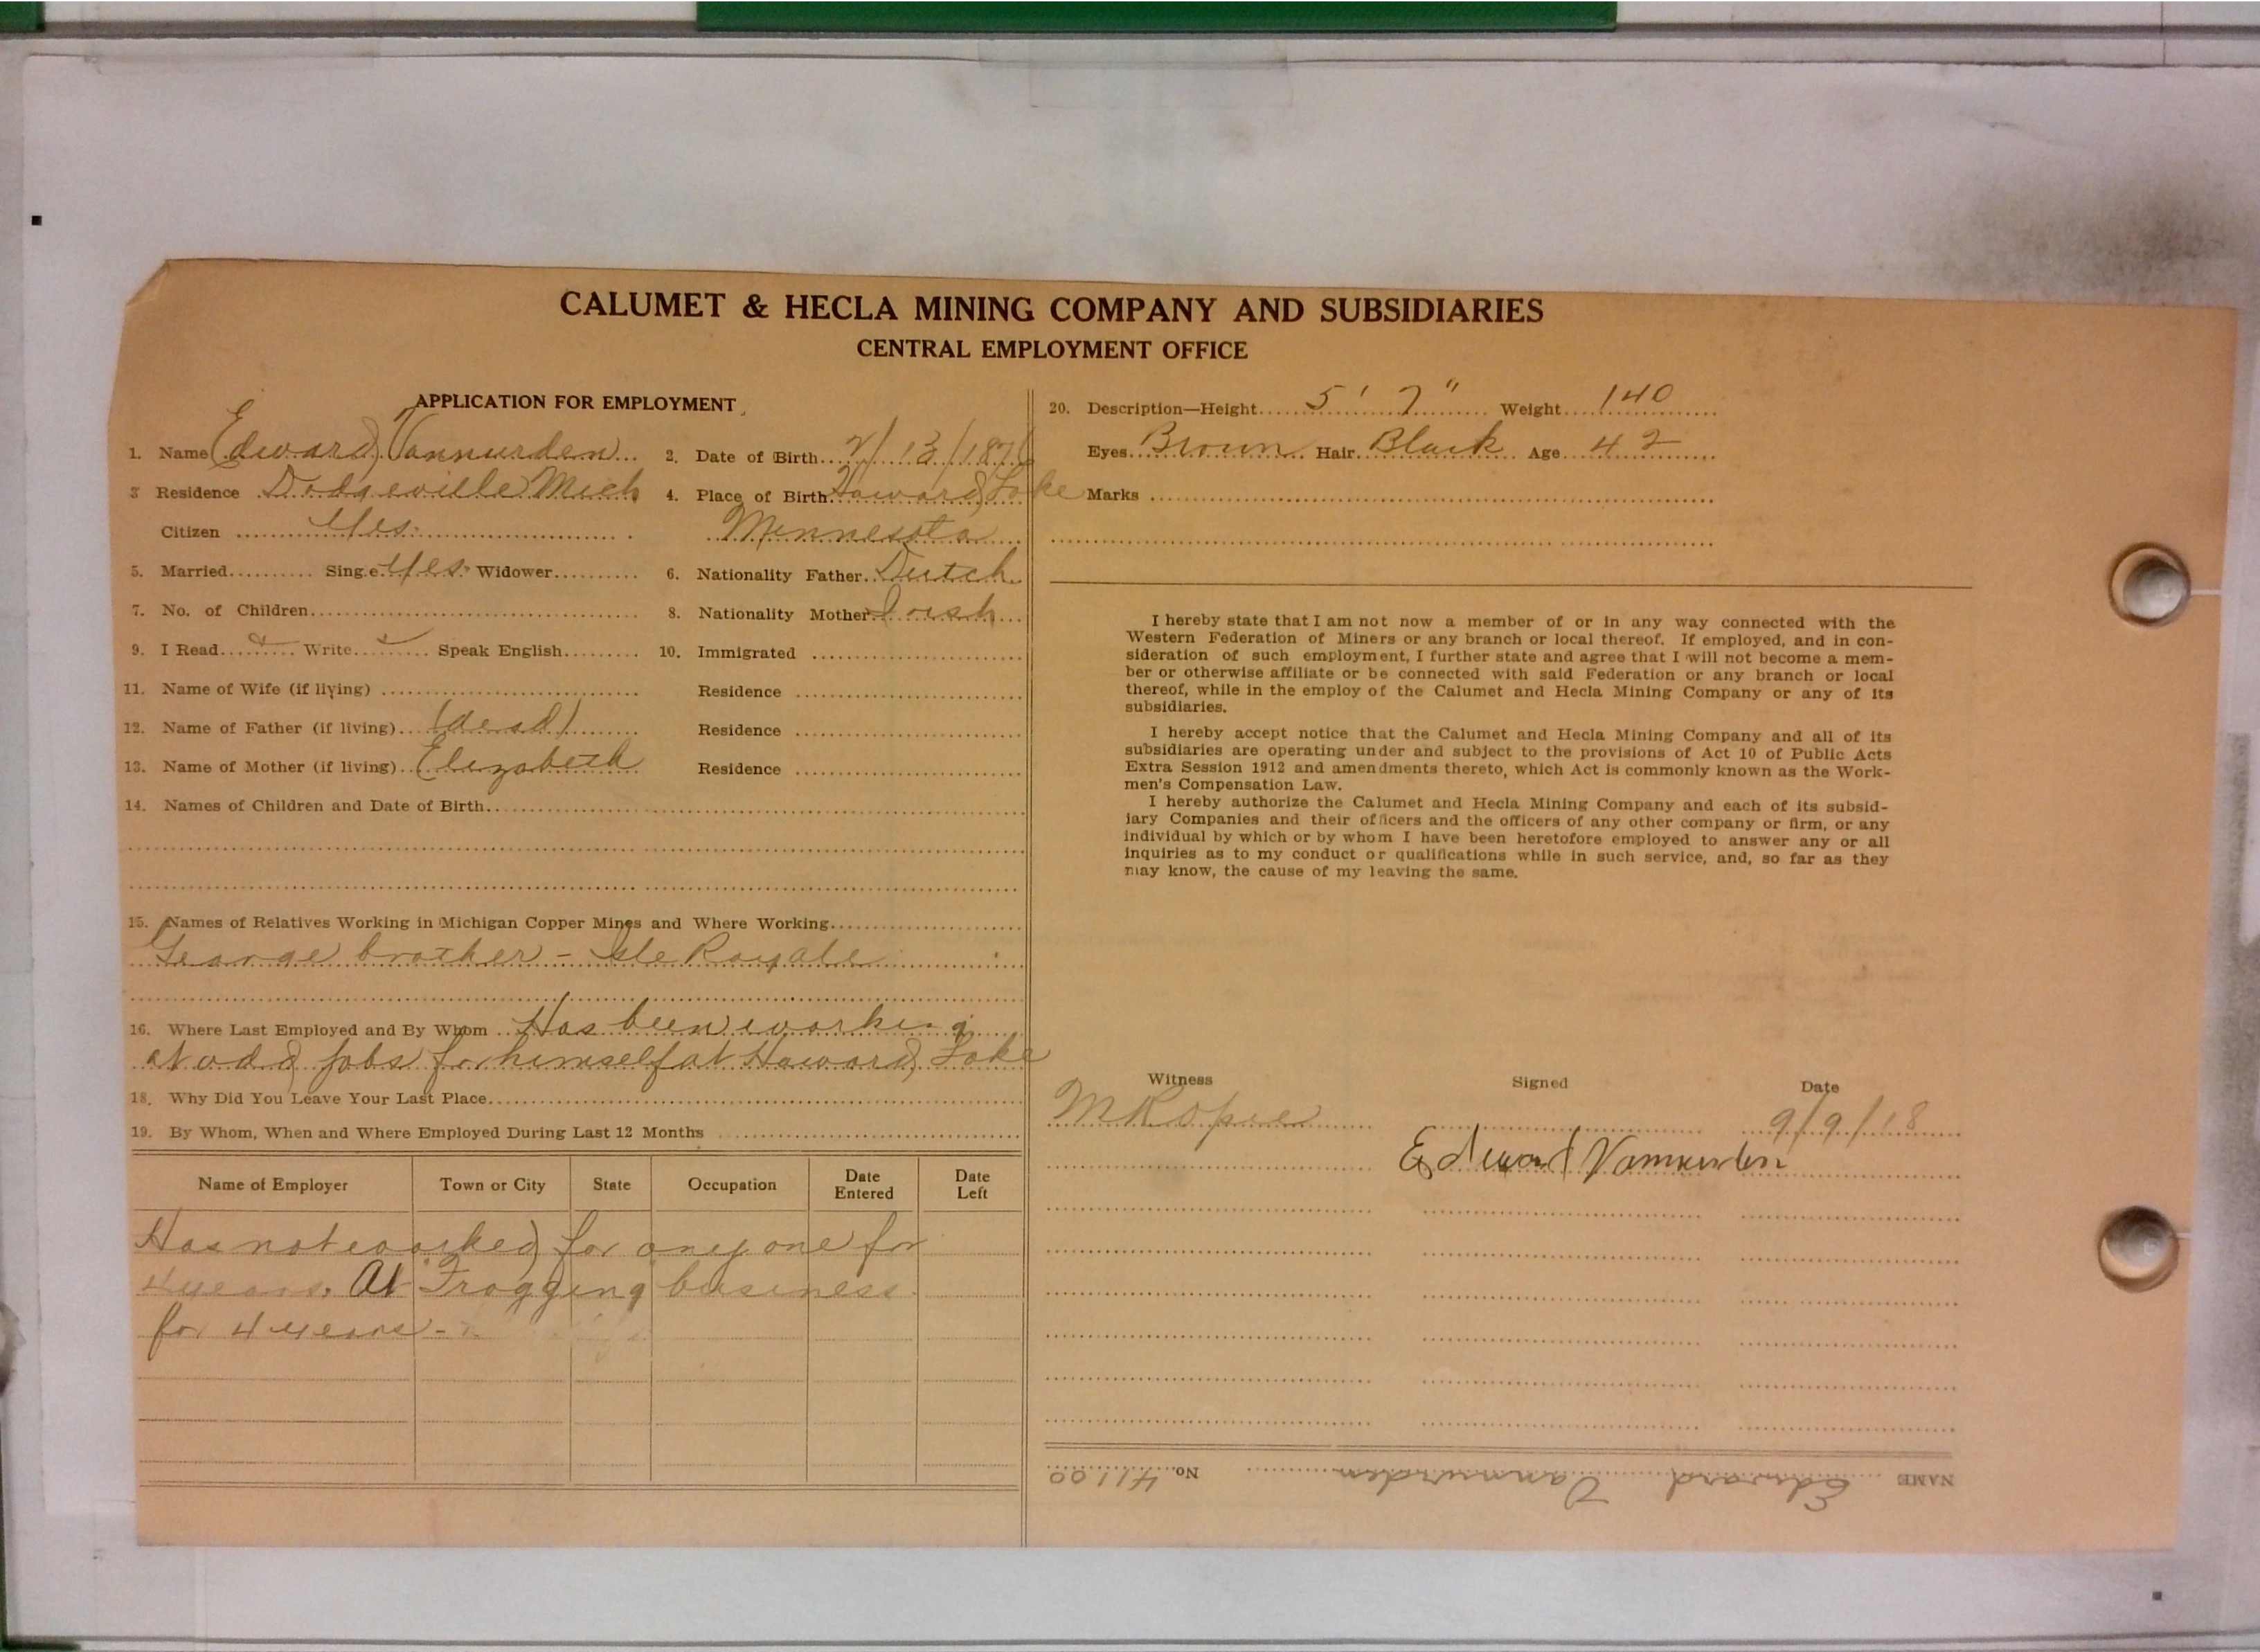 CALUMET & HECLA MINING COMPANY AND SUBSIDIARIES
CENTRAL EMPLOYMENT OFFICE
APPLICATION FOR EMPLOYMENT
1. Name Edward Vannurden 2. Date of Birth 2/13/1876
3 Residence Dodgeville Mich 4. Place of Birth Howard Lake
Citizen Yes. Minnesota
5. Married Single Yes. Widower 6. Nationality Father Dutch
7. No. of Children 8. Nationality Mother Irish
9. I Read Write Speak English 10. Immigrated
11. Name of Wife (if living) Residence
12. Name of Father (if living) (dead) Residence
13. Name of Mother (if living) Elizabeth Residence
14. Names of Children and Date of Birth
15. Names of Relatives Working in Michigan Copper Mines and Where Working
George brother - Isle Royale
16. Where Last Employed and By Whom Has been working
at odd jobs for himself at Howard Lake
18. Why Did You Leave Your Last Place
19. By Whom, When and Where Employed During Last 12 Months
Name of Employer Town or City State Occupation Date Entered Date Left
Has not worked for any one for
4 years. At "Frogging" business
for 4 years -
20. Description—Height 5' 7" Weight 140
Eyes Brown Hair Black Age 42
Marks
I hereby state that I am not now a member of or in any way connected with the
Western Federation of Miners or any branch or local thereof. If employed, and in con-
sideration of such employment, I further state and agree that I will not become a mem-
ber or otherwise affiliate or be connected with said Federation or any branch or local
thereof, while in the employ of the Calumet and Hecla Mining Company or any of its
subsidiaries.
I hereby accept notice that the Calumet and Hecla Mining Company and all of its
subsidiaries are operating under and subject to the provisions of Act 10 of Public Acts
Extra Session 1912 and amendments thereto, which Act is commonly known as the Work-
men's Compensation Law.
I hereby authorize the Calumet and Hecla Mining Company and each of its subsid-
iary Companies and their officers and the officers of any other company or firm, or any
individual by which or by whom I have been heretofore employed to answer any or all
inquiries as to my conduct or qualifications while in such service, and, so far as they
may know, the cause of my leaving the same.
Witness Signed Date
9/9/18
Edward Vannurden
NAME Edward Vannurden No. 41100